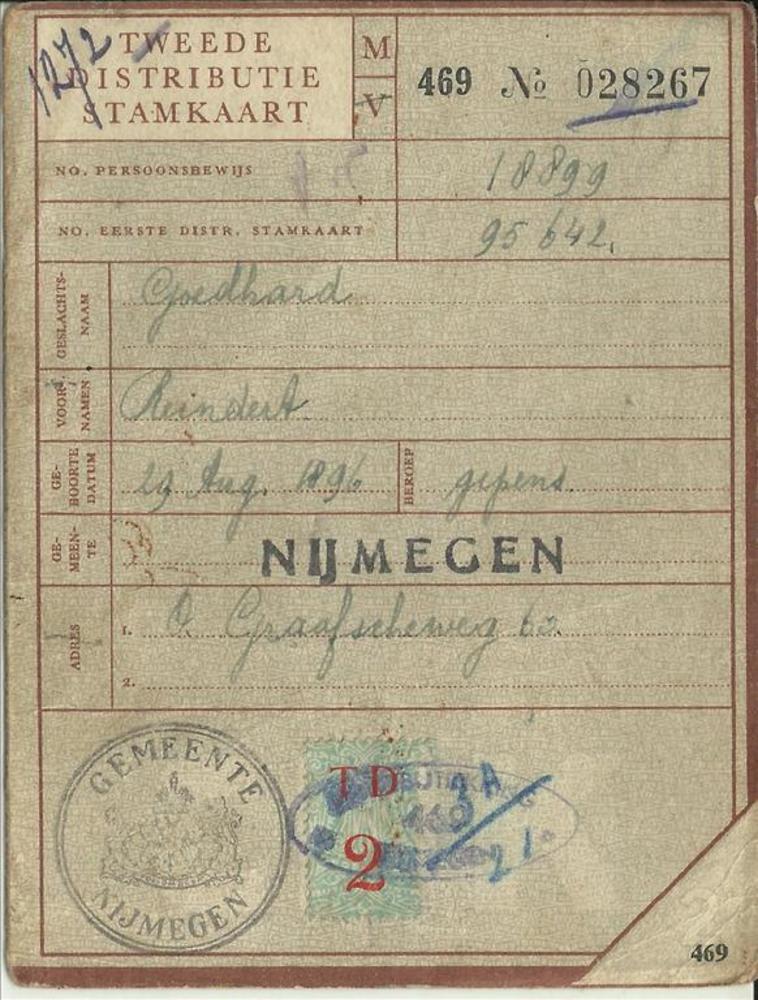 1272
TWEEDE
DISTRIBUTIE
STAMKAART
M
V
469 No 028267
NO. PERSOONSBEWIJS 18899
NO. EERSTE DISTR. STAMKAART 95642.
GESLACHTS-
NAAM
Goedhard
VOOR-
NAMEN
Reindert
GE-
BOORTE
DATUM
29 Aug. 1896
BEROEP
gepens.
GE-
MEEN-
TE
NIJMEGEN
ADRES
1. Graafscheweg
2.
GEMEENTE
NIJMEGEN
TD
2
469